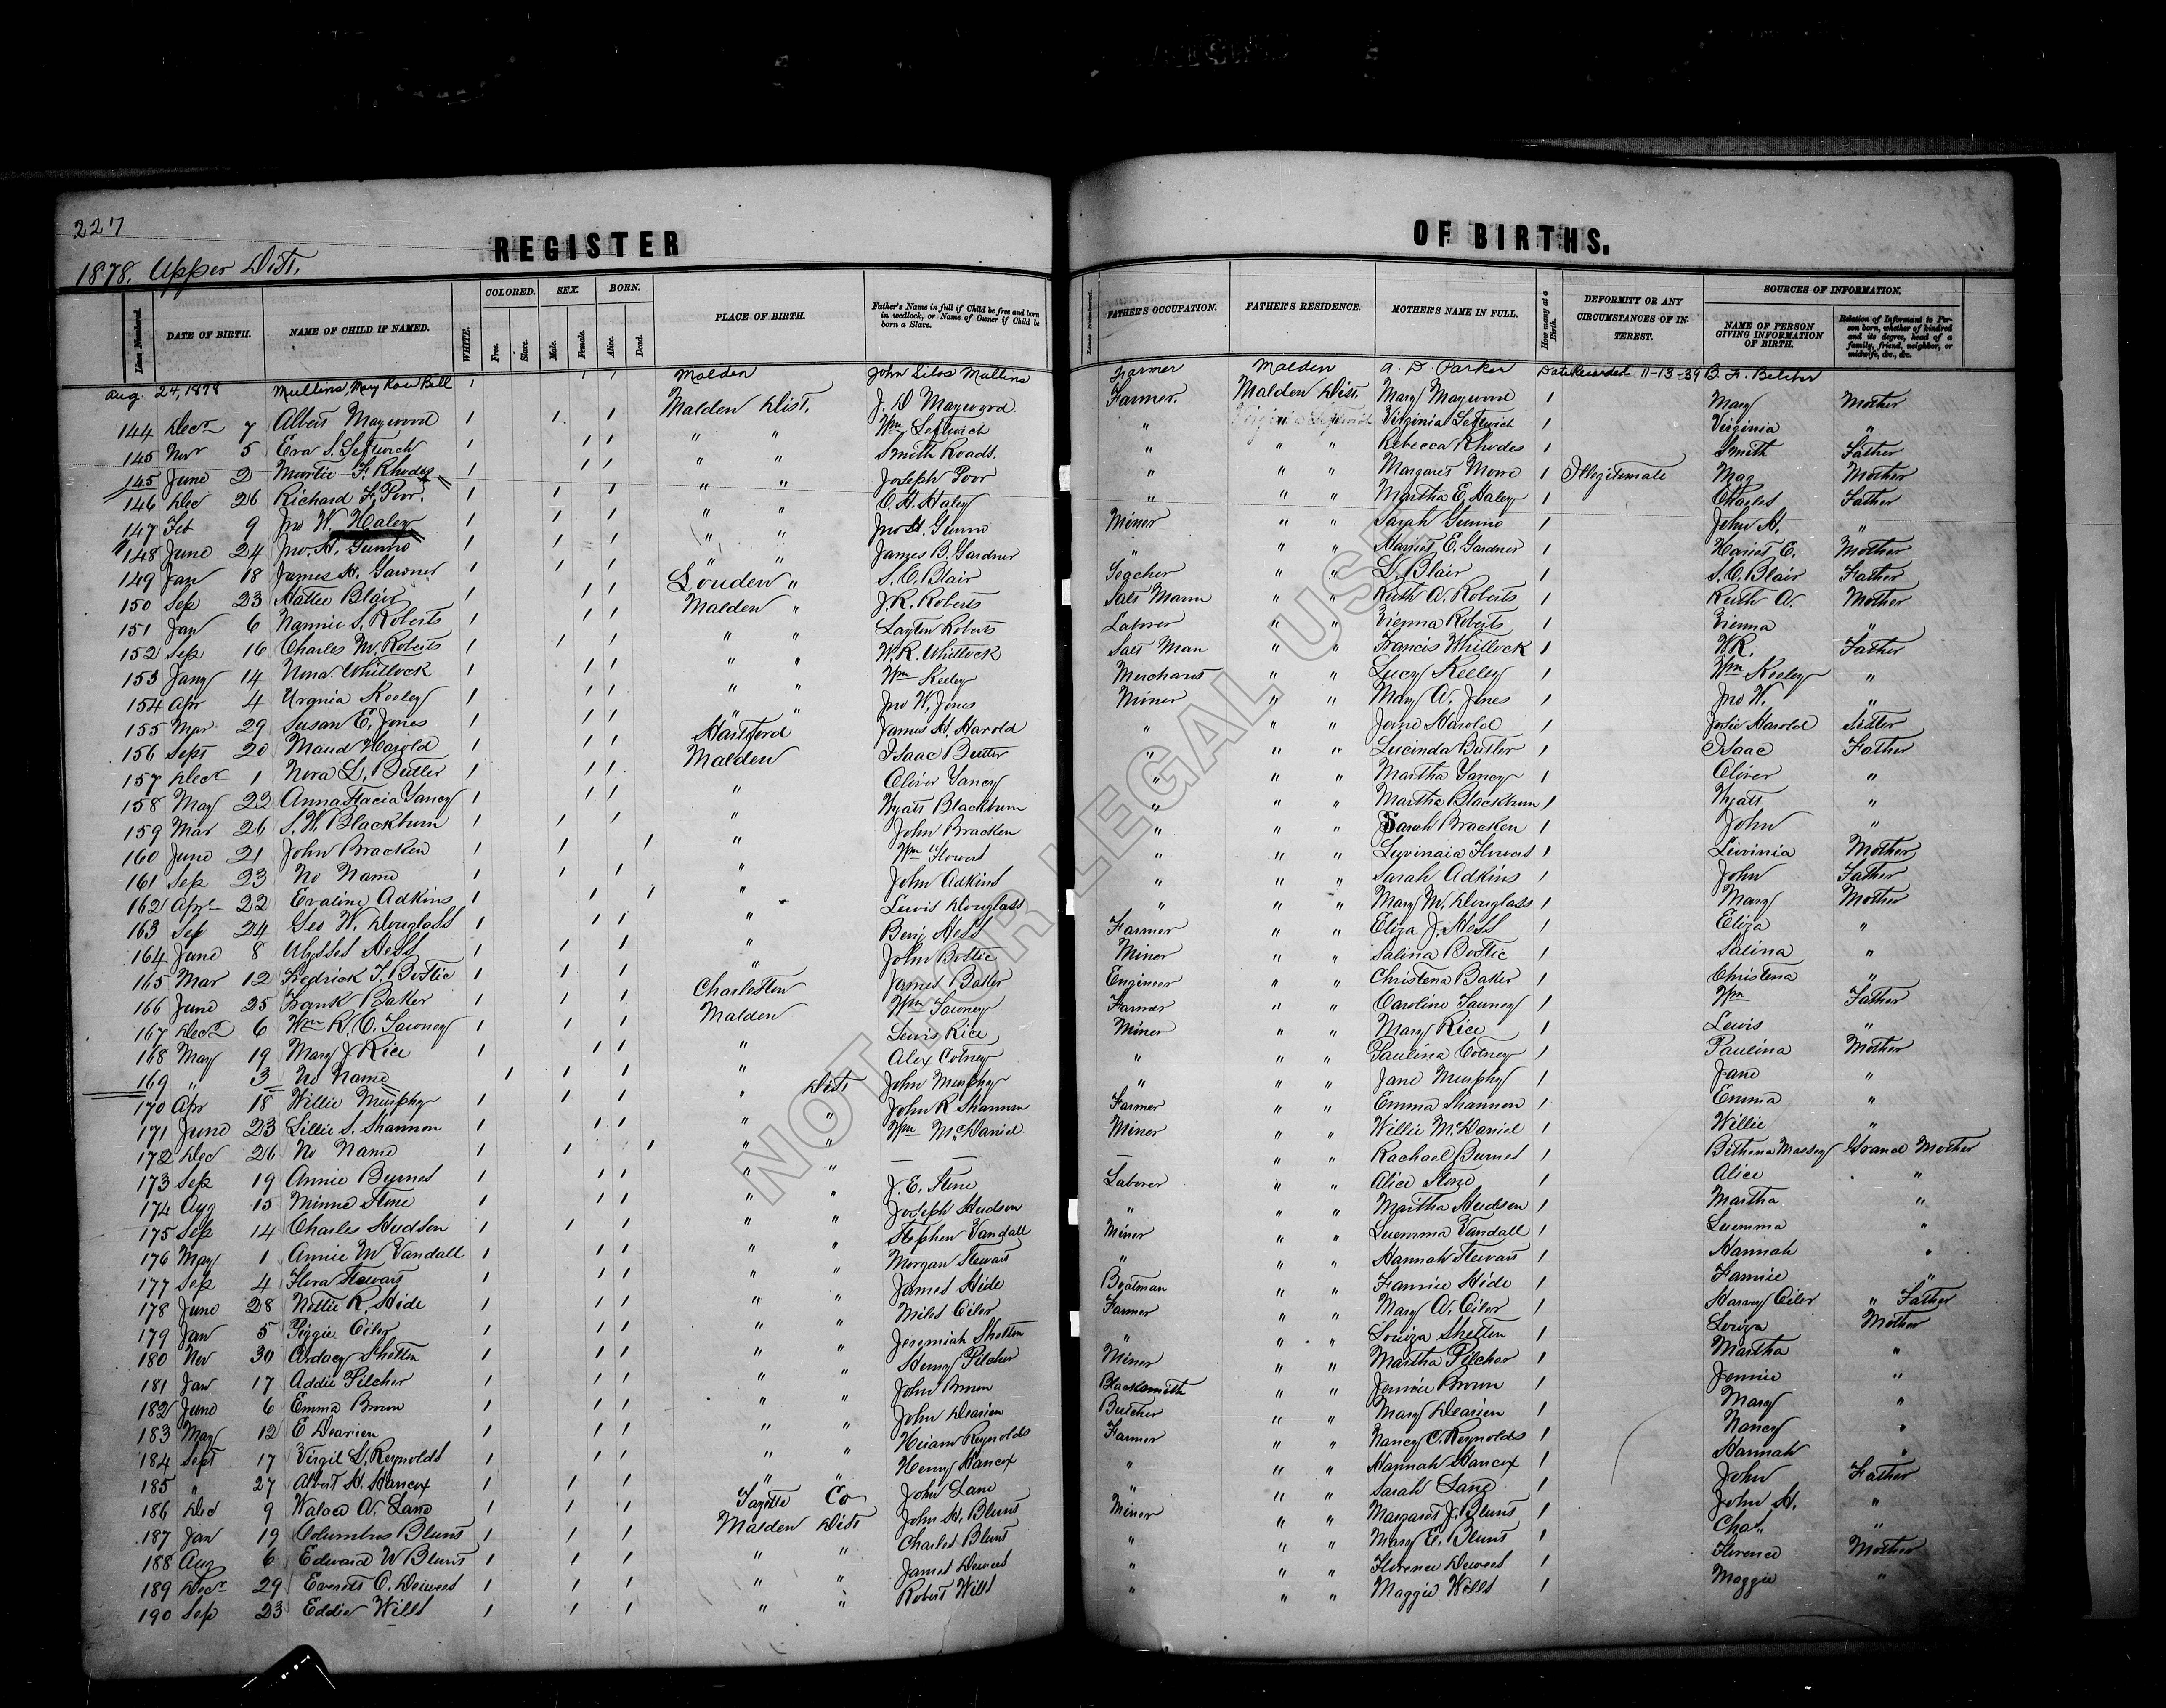 227
REGISTER OF BIRTHS.
1878, Upper Dist.
Line Numbered. DATE OF BIRTH. NAME OF CHILD IF NAMED. WHITE. COLORED. Free. Slave. SEX. Male. Female. BORN. Alive. Dead. PLACE OF BIRTH. Father's Name in full if Child be free and born in wedlock, or Name of Owner if Child be born a Slave. Lines Numbered. FATHER'S OCCUPATION. FATHER'S RESIDENCE. MOTHER'S NAME IN FULL. How many at a Birth. DEFORMITY OR ANY CIRCUMSTANCES OF INTEREST. SOURCES OF INFORMATION. NAME OF PERSON GIVING INFORMATION OF BIRTH. Relation of Informant to Person born, whether of kindred and its degree, head of a family, friend, neighbor, or midwife, &c., &c.
Aug. 24, 1878 Mullins, May Rose Bell 1 1 1 Malden John Silas Mullins Farmer Malden A. D. Parker Date Recorded 11-13-39 B. F. Belcher
144 Decr 7 Albert Maywood 1 1 1 Malden Dist. J. D. Maywood Farmer. Malden Dist. Mary Maywood 1 Mary Mother
145 Novr 5 Eva S. Leftwich 1 1 1 " " Wm Leftwich " Virginia Leftwich 1 Virginia "
145 June 2 Murtie F. Rhodes 1 1 1 " " Smith Roads. " " " Rebecca Rhodes 1 Smith Father
146 Dec 26 Richard F. Poor. 1 1 1 " " Joseph Poor " " " Margaret Mone 1 Illegitemate Mag Mother
147 Feb 9 Jno W. Haley 1 1 1 " " C. H. Haley " " " Martha E. Haley 1 Charles Father
148 June 24 Jno. H. Gunno 1 1 1 " " Jno H. Gunno Miner " " Sarah Gunno 1 John H. "
149 Jan 18 James H. Gardner 1 1 1 " " James B. Gardner " " " Harriet E. Gardner 1 Hariet E. Mother
150 Sep 23 Hattie Blair 1 1 1 Louden " S. C. Blair Teacher " " L. Blair 1 S. C. Blair Father
151 Jan 6 Nannie S. Roberts 1 1 1 Malden " J. R. Roberts Salt Mann " " Ruth A. Roberts 1 Ruth A. Mother
152 Sep 16 Charles M. Roberts 1 1 1 " " Layten Roberts Laborer " " Vienna Roberts 1 Vienna "
153 Jany 14 Nona Whitlock 1 1 1 " " W. R. Whitlock Salt Man " " Francis Whitlock 1 W R. Father
154 Apr 4 Urgnia Keeley 1 1 1 " " Wm Keeley Merchant " " Lucy Keeley 1 Wm Keeley "
155 Mar 29 Susan E. Jones 1 1 1 " " Jno W. Jones Miner " " Mary A. Jones 1 Jno W. "
156 Sept 20 Maud Harold 1 1 1 Hartford James H. Harold " " " Jane Harold 1 Josie Harold Sister
157 Decr 1 Nora L. Butler 1 1 1 Malden Isaac Butler " " " Lucinda Butler 1 Isaac Father
158 May 22 Anna Stacia Yancy 1 1 1 " Oliver Yancy " " " Martha Yancy 1 Oliver "
159 Mar 26 S. W. Blackburn 1 1 1 " Wyatt Blackburn " " " Martha Blackburn 1 Wyatt "
160 June 21 John Bracken 1 1 1 " John Bracken " " " Sarah Bracken 1 John "
161 Sep 23 No Name 1 1 1 " Wm Flowers " " " Luvinaia Flowers 1 Livinia Mother
162 Apl 22 Evaline Adkins 1 1 1 " John Adkins " " " Sarah Adkins 1 John Father
163 Sep 24 Geo W. Douglass 1 1 1 " Lewis Douglass " " " Mary M. Douglass 1 Mary Mother
164 June 8 Ulysses Hess 1 1 1 " Benj Hess Farmer " " Eliza J. Hess 1 Eliza "
165 Mar 12 Fedrick T. Bostic 1 1 1 " John Bostic Miner " " Salina Bostic 1 Salina "
166 June 25 Frank Baker 1 1 1 Charleston James Baker Engineer " " Christena Baker 1 Christena "
167 Decr 6 Wm R. C. Tawney 1 1 1 Malden Wm Tawney Farmer " " Caroline Tauney 1 Wm Father
168 May 19 Mary J Rice 1 1 1 " Lewis Rice Miner " " Mary Rice 1 Lewis "
169 " 3 No Name 1 1 1 " Alex Cotney " " " Paulina Cotney 1 Paulina Mother
170 Apr 18 Willie Murphy 1 1 1 " Dist John Murphy " " " Jane Murphy 1 Jane "
171 June 23 Lillie S. Shannon 1 1 1 " " John R Shannon Farmer " " Emma Shannon 1 Emma "
172 Dec 26 No Name 1 1 1 " " Wm McDaniel Miner " " Willie McDaniel 1 Willie "
173 Sep 19 Annie Byrnes 1 1 1 " " — — — " " Rachael Burnes 1 Bithena Massey Grand Mother
174 Aug 15 Minne Stone 1 1 1 " " J. E. Stone Laborer " " Alice Stone 1 Alice "
175 Sep 14 Charles Hudson 1 1 1 " " Joseph Hudson " " " Martha Hudson 1 Martha "
176 May 1 Annie M Vandall 1 1 1 " " Stephen Vandall Miner " " Luemma Vandall 1 Luemma "
177 Sep 4 Flora Stewart 1 1 1 " " Morgan Stewart " " " Hannah Stewart 1 Hannah "
178 June 28 Nettie R. Hide 1 1 1 " " James Hide Boatman " " Fannie Hide 1 Fannie "
179 Jan 5 Piggie Oiler 1 1 1 " " Miles Oiler Farmer " " Mary A. Oiler 1 Harvey Oiler " Father
180 Nov 30 Ordacy Shelton 1 1 1 " " Jeremiah Shelton " " " Louiza Shelton 1 Louiza Mother
181 Jan 17 Addie Pilcher 1 1 1 " " Henry Pilcher Miner " " Martha Pilcher 1 Martha "
182 June 6 Emma Brown 1 1 1 " " John Brown Blacksmith " " Jennie Brown 1 Jennie "
183 May 12 E Dearien 1 1 1 " " John Dearien Butcher " " Mary Dearien 1 Mary "
184 Sept 17 Virgil S. Reynolds 1 1 1 " " Hiram Reynolds Farmer " " Nancy C. Reynolds 1 Nancy "
185 " 27 Albert H. Hancox 1 1 1 " " Henry Hancox " " " Hannah Hancox 1 Hannah "
186 Dec 9 Walace A. Lane 1 1 1 Fayette Co John Lane " " " Sarah Lane 1 John Father
187 Jan 19 Columbus Blunt 1 1 1 Malden Dist John H. Blunt Miner " " Margaret J. Blunt 1 John H. "
188 Aug 6 Edward W Blunt 1 1 1 " " Charles Blunt " " " Mary E. Blunt 1 Chas. "
189 Decr 29 Everett O. Deweese 1 1 1 " " James Deweese " " " Florence Deweese 1 Florence Mother
190 Sep 23 Eddie Wills 1 1 1 " " Robert Wills " " " Maggie Wills 1 Maggie "
NOT FOR LEGAL USE